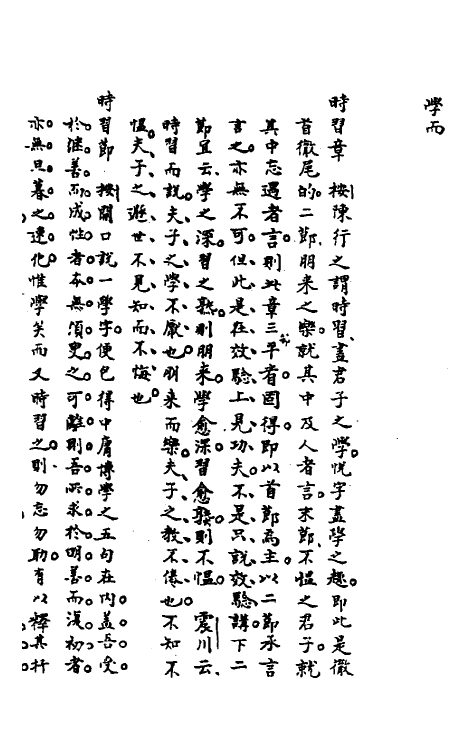 學而
時習章 按陳行之謂時習盡君子之學悅字盡學之趣即此是徹
首徹尾的二節朋來之樂就其中及人者言末節不慍之君子就
其中忘遇者言則此章三平看固得即以首節爲主以二節承言
言之亦無不可但此是在效驗上見功夫不是只說效驗講下二
節宜云學之深習之熟則朋來學愈深習愈熟則不慍 震川云
時習而說夫子之學不厭也朋來而樂夫子之教不倦也不知不
慍夫子之遯世不見知而不悔也
時習節 按開口說一學字便包得中庸博學之五句在內蓋吾受
於繼善而成性者本無須臾之可離則吾所求於明善而復初者
亦無旦暮之達化惟學矣而又時習之則勿忘勿助有以釋其扞